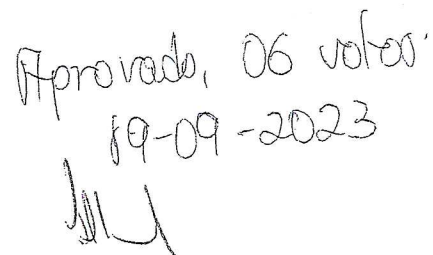 Aprovado, 06 votos.
19-09-2023